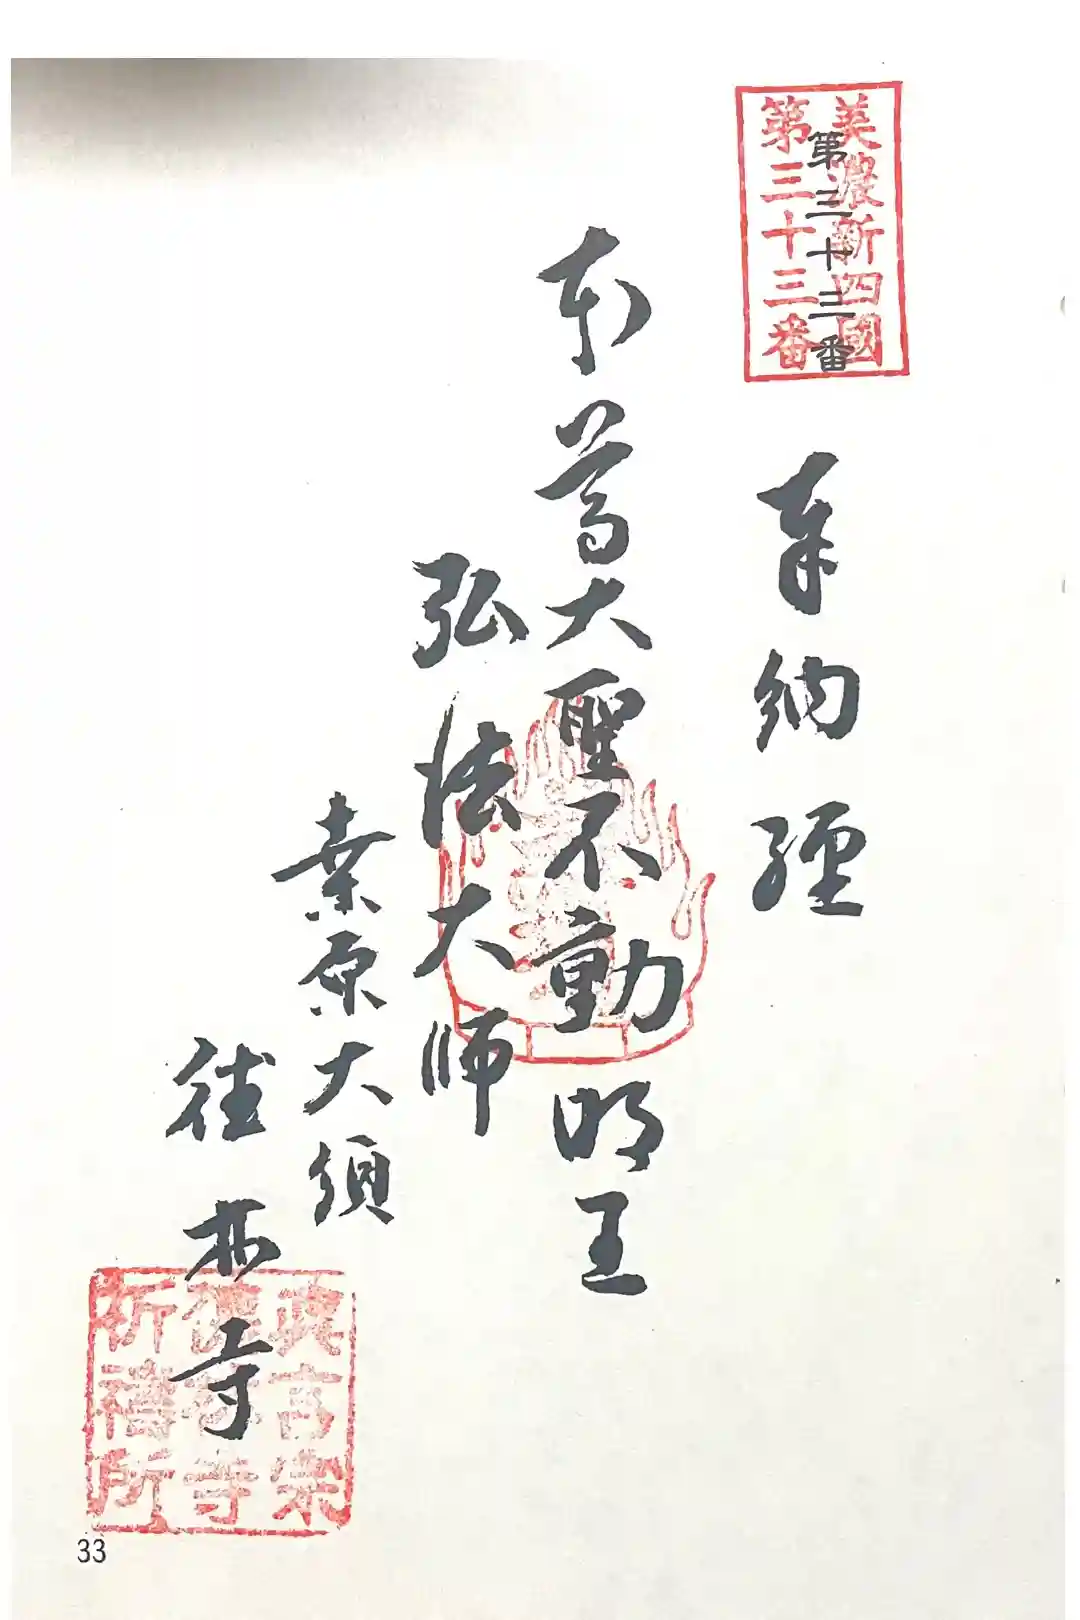 美濃新四國
第三十三番
第三十三番
奉納經
本尊大聖不動明王
弘法大师
桒原大須
徳林寺
眞言宗
德林寺
祈禱所
33